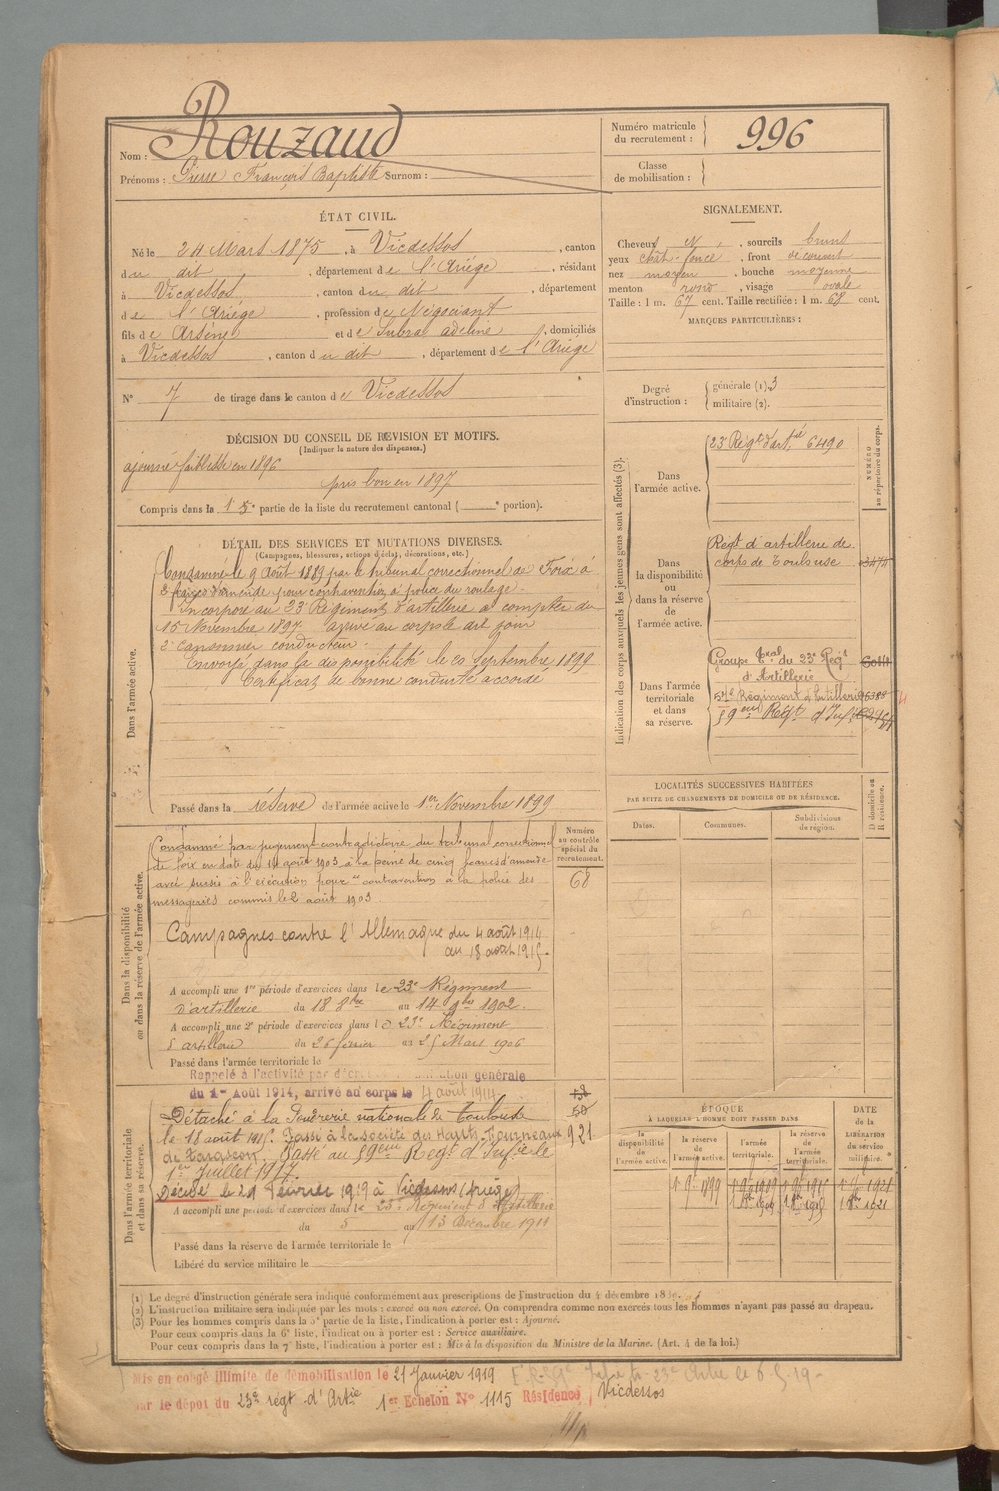 Nom : Rouzaud
Prénoms : Pierre François Baptiste Surnom :
Numéro matricule du recrutement : 996
Classe de mobilisation :
ÉTAT CIVIL.
Né le 24 Mars 1875, à Vicdessos, canton
du dit, département de l'Ariége, résidant
à Vicdessos, canton du dit, département
de l'Ariége, profession de Négociant
fils de Arsène et de Subra adeline, domiciliés
à Vicdessos, canton du dit, département de l'Ariége
N° 7 de tirage dans le canton de Vicdessos
SIGNALEMENT.
Cheveux N, sourcils bruns
yeux chât-foncé, front découvert
nez moyen, bouche moyenne
menton rond, visage ovale
Taille : 1 m. 67 cent. Taille rectifiée : 1 m. 68 cent.
MARQUES PARTICULIÈRES :
Degré d'instruction : générale (1). 3
militaire (2).
DÉCISION DU CONSEIL DE REVISION ET MOTIFS.
(Indiquer la nature des dispenses.)
ajourné faiblesse en 1896
pris bon en 1897
Compris dans la 1 5e partie de la liste du recrutement cantonal ( e portion).
DÉTAIL DES SERVICES ET MUTATIONS DIVERSES.
(Campagnes, blessures, actions d'éclat, décorations, etc.)
Dans l'armée active.
Condamné le 9 Août 1889 par le tribunal correctionnel de Foix à
d'amende pour contravention à police du roulage.
Incorporé au 23e Régiment d'artillerie à compter du
15 Novembre 1897 arrivé au corps le dit jour
2e canonnier conducteur.
Envoyé dans la disponibilité le 20 Septembre 1899
Certificat de bonne conduite accordé
Passé dans la réserve de l'armée active le 1er Novembre 1899
Indication des corps auxquels les jeunes gens sont affectés (3).
NUMÉRO au répertoire du corps.
Dans l'armée active.
23e Régt d'artie 6490
Dans la disponibilité ou dans la réserve de l'armée active.
Régt d'artillerie de
corps de Toulouse
Dans l'armée territoriale et dans sa réserve.
Groupe Tral du 23e Régt
d'Artillerie
57e Régiment d'Artillerie
59eme Régt d'Infie
LOCALITÉS SUCCESSIVES HABITÉES
PAR SUITE DE CHANGEMENTS DE DOMICILE OU DE RÉSIDENCE.
Dates. Communes. Subdivisions de région. D domicile ou R résidence.
Dans la disponibilité ou dans la réserve de l'armée active.
Numéro au contrôle spécial du recrutement.
68
Condamné par jugement contradictoire du tribunal correctionnel
de foix en date du 19 août 1903 à la peine de cinq francs d'amende
avec sursis à l'exécution pour "contravention à la police des
messageries commis le 2 août 1903.
Campagnes contre l'Allemagne du 4 août 1914
au 18 août 1915.
A accompli une 1re période d'exercices dans le 23e Régiment
d'artillerie du 18 8bre au 14 9bre 1902.
A accompli une 2e période d'exercices dans le 23e Régiment
d'artillerie du 26 février au 25 Mars 1906
Passé dans l'armée territoriale le
Rappelé à l'activité par décret de mobilisation générale
du 1er Août 1914, arrivé au corps le 4 août 1914
Dans l'armée territoriale et dans sa réserve.
58
50
921
Détaché à la Poudrerie nationale de Toulouse
le 18 août 1915. Passé à la société des Hauts-Fourneaux
de Tarascon. Passé au 59eme Régt d'Infie le
1er Juillet 1917
Décédé le 21 Février 1919 à Vicdessos (Ariège)
A accompli une période d'exercices dans le 23e Régiment d'Artillerie
du 5 au 13 Décembre 1911
Passé dans la réserve de l'armée territoriale le
Libéré du service militaire le
ÉPOQUE
À LAQUELLE L'HOMME DOIT PASSER DANS
la disponibilité de l'armée active. la réserve de l'armée active. l'armée territoriale. la réserve de l'armée territoriale. DATE de la LIBÉRATION du service militaire.
(1) Le degré d'instruction générale sera indiqué conformément aux prescriptions de l'instruction du 4 décembre 1889.
(2) L'instruction militaire sera indiquée par les mots : exercé ou non exercé. On comprendra comme non exercés tous les hommes n'ayant pas passé au drapeau.
(3) Pour les hommes compris dans la 5e partie de la liste, l'indication à porter est : Ajourné.
Pour ceux compris dans la 6e liste, l'indication à porter est : Service auxiliaire.
Pour ceux compris dans la 7e liste, l'indication à porter est : Mis à la disposition du Ministre de la Marine. (Art. 4 de la loi.)
Mis en congé illimité de démobilisation le 21 Janvier 1919
par le dépôt du 23e régt d'Artie 1er Echelon N° 1115 Résidence Vicdessos